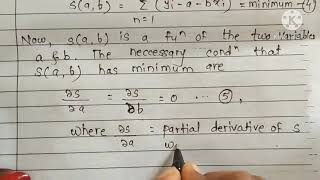 S(a,b) = Σ (yi - a - bxi) = minimum -(4)
n=1
Now, S(a,b) is a fuⁿ of the two variables
a & b. The neccessary condⁿ that
S(a,b) has minimum are
∂S/∂a = ∂S/∂b = 0 ... ⑤,
where ∂S/∂a = partial derivative of S
w